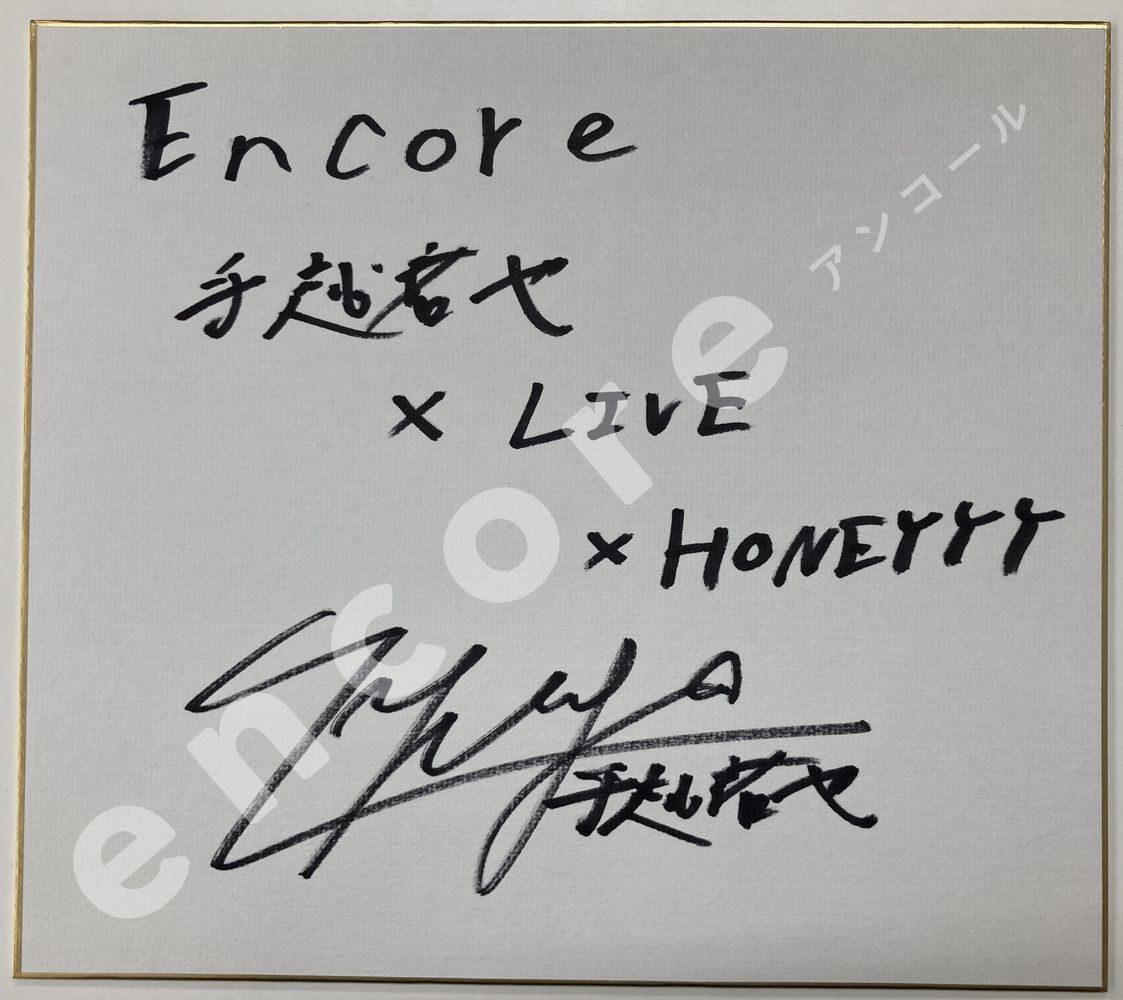 Encore
手越祐也
× LIVE
× HONEYYY
手越祐也
encore
アンコール